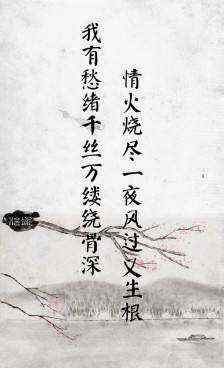 情火烧尽一夜风过又生根
我有愁绪千丝万缕绕骨深